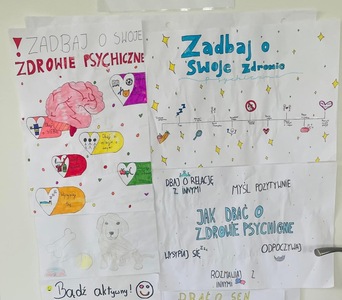 ! ZADBAJ O SWOJE
ZDROWIE PSYCHICZNE
Bądź aktywny!
Zadbaj o
swoje zdrowie
DBAJ O RELACJE
Z INNYMI
MYŚL POZYTYWNIE
JAK DBAĆ O
ZDROWIE PSYCHICZNE
WYSYPIAJ SIĘ
ODPOCZYWAJ
ROZMAWIAJ Z
INNYMI
DBAJ O SEN